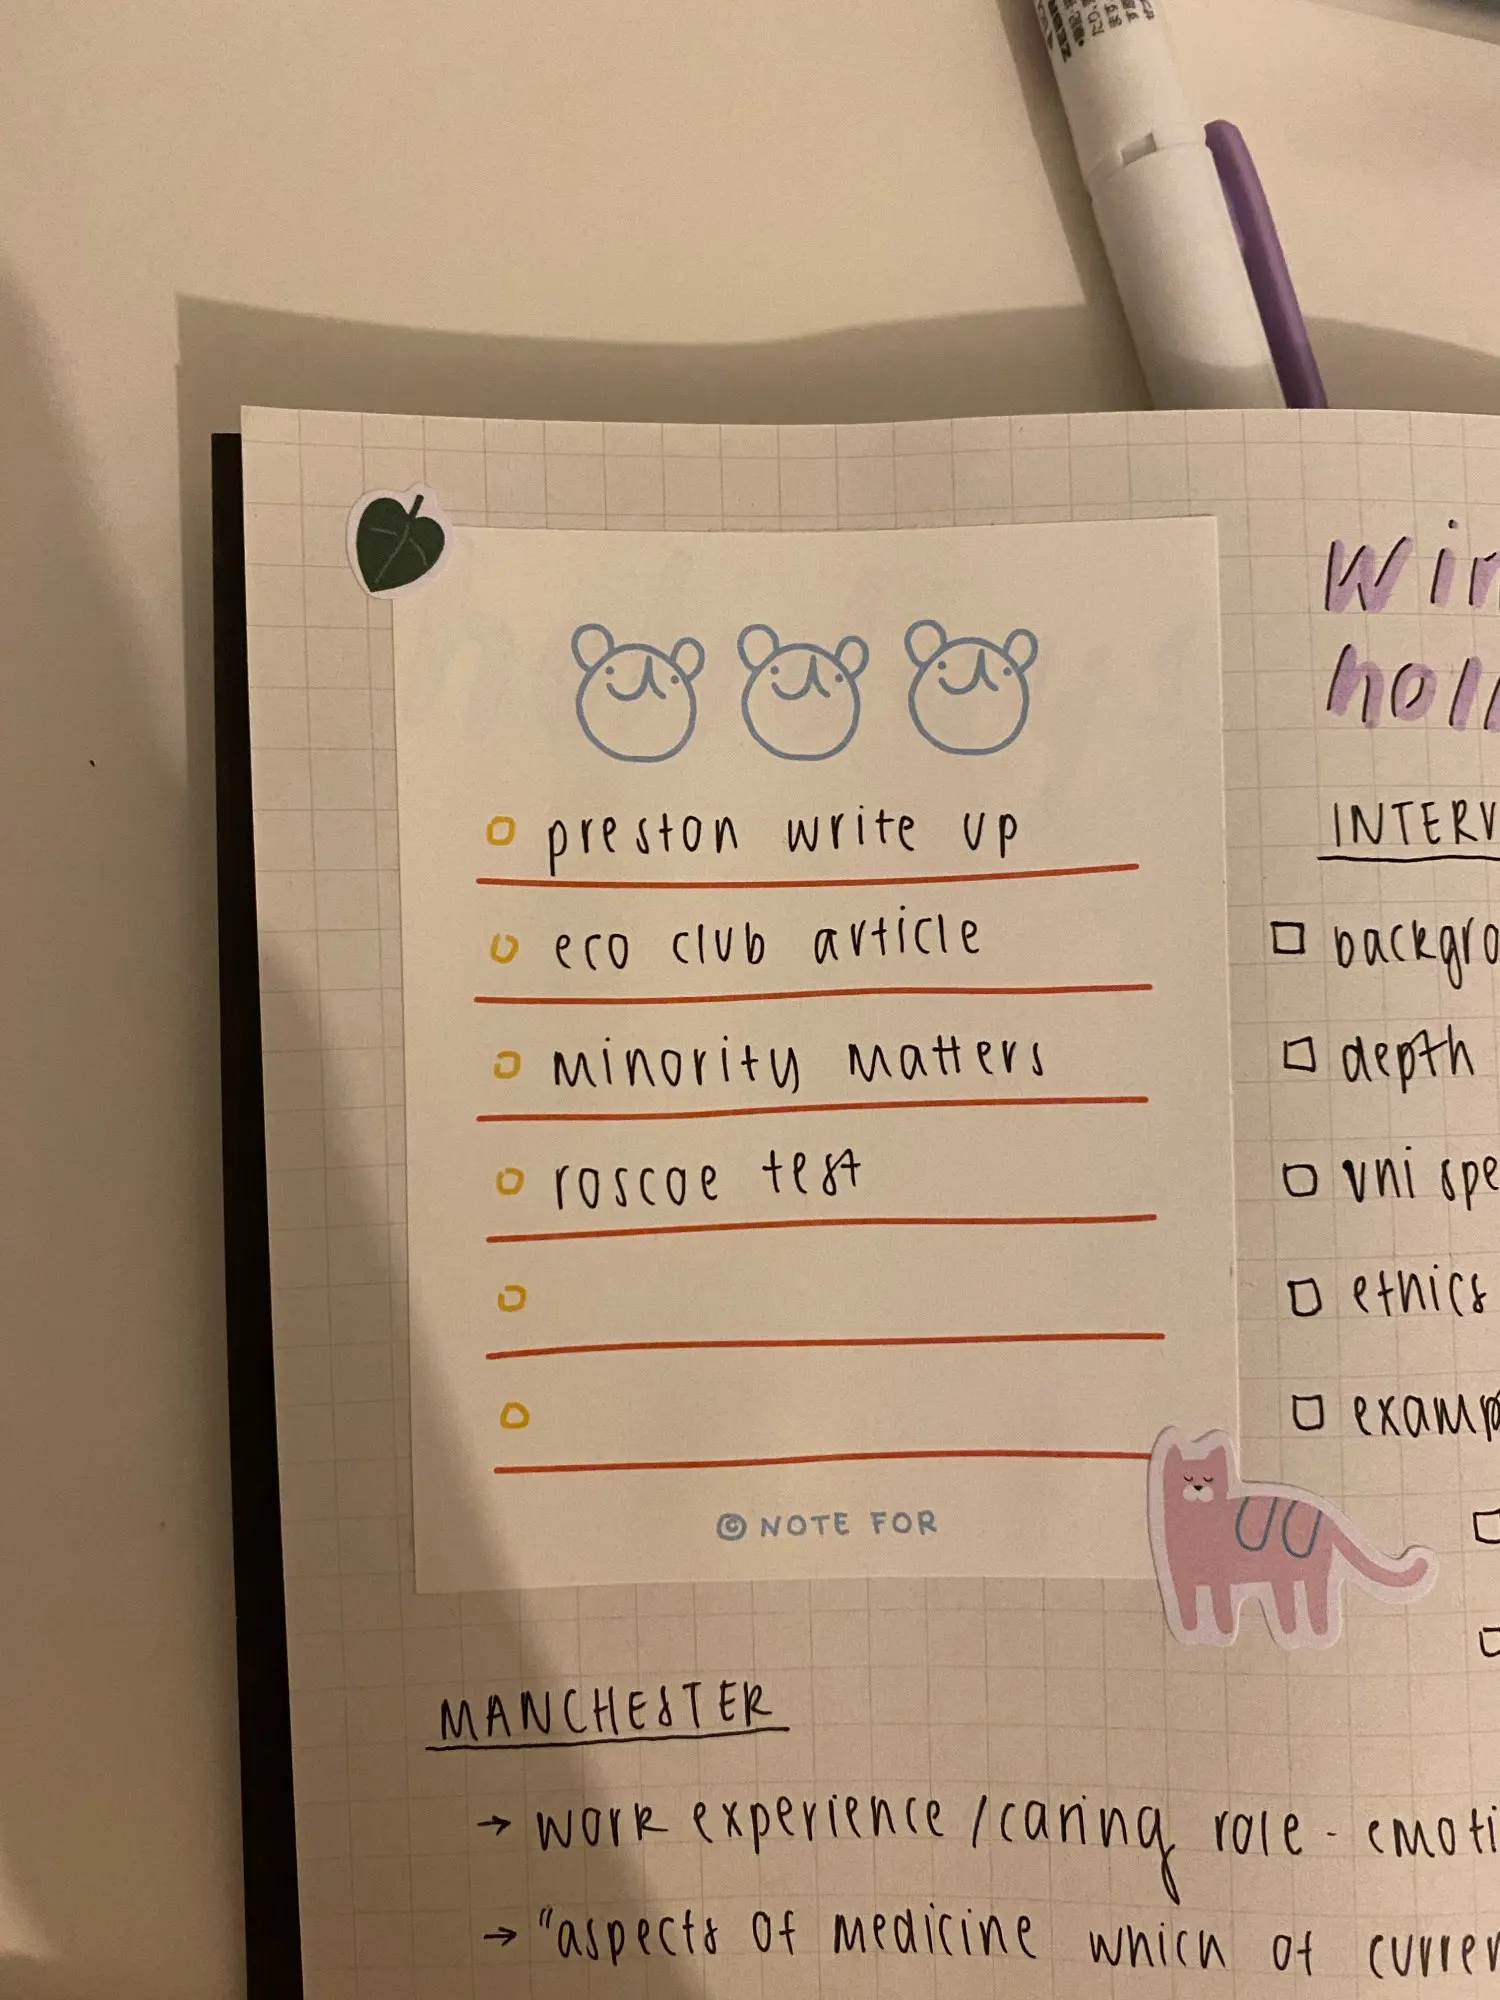 preston write up
eco club article
minority matters
roscoe test
© NOTE FOR
INTERV
backgro
depth
uni spe
ethics
examp
MANCHESTER
→ work experience / caring role - emoti
→ "aspects of medicine which of curren